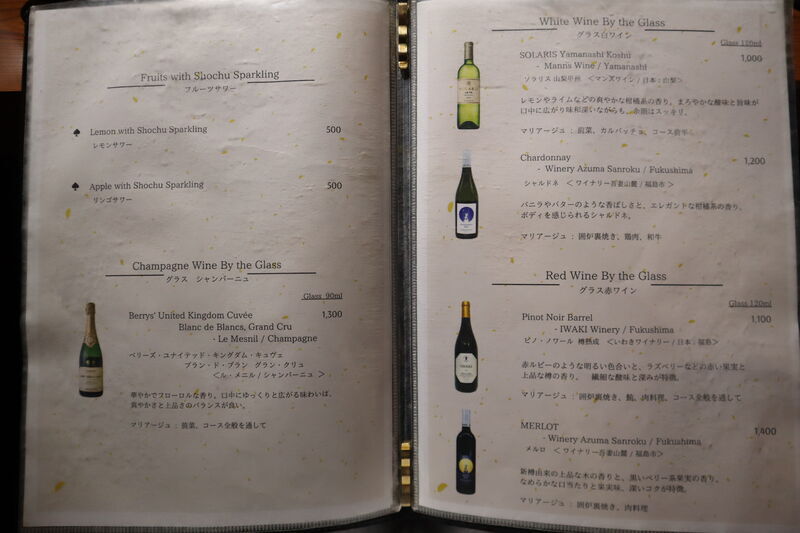 Fruits with Shochu Sparkling
フルーツサワー
Lemon with Shochu Sparkling 500
レモンサワー
Apple with Shochu Sparkling 500
リンゴサワー
Champagne Wine By the Glass
グラス シャンパーニュ
Glass 90ml
Berrys' United Kingdom Cuvée 1,300
Blanc de Blancs, Grand Cru
- Le Mesnil / Champagne
ベリーズ・ユナイテッド・キングダム・キュヴェ
ブラン・ド・ブラン グラン・クリュ
＜ル・メニル / シャンパーニュ ＞
華やかでフローロルな香り、口中にゆっくりと広がる味わいは、
爽やかさと上品さのバランスが良い。
マリアージュ ： 前菜、コース全般を通して
White Wine By the Glass
グラス白ワイン
Glass 120ml
SOLARIS Yamanashi Koshu 1,000
- Manns Wine / Yamanashi
ソラリス 山梨甲州 ＜マンズワイン / 日本：山梨＞
レモンやライムなどの爽やかな柑橘系の香り。まろやかな酸味と旨味が
口中に広がり味わ深いながらも、余韻はスッキリ。
マリアージュ ： 前菜、カルパッチョ、コース前半
Chardonnay 1,200
- Winery Azuma Sanroku / Fukushima
シャルドネ ＜ ワイナリー吾妻山麓 / 福島市 ＞
バニラやバターのような香ばしさと、エレガントな柑橘系の香り。
ボディを感じられるシャルドネ。
マリアージュ ： 囲炉裏焼き、鶏肉、和牛
Red Wine By the Glass
グラス赤ワイン
Glass 120ml
Pinot Noir Barrel 1,100
- IWAKI Winery / Fukushima
ピノ・ノワール 樽熟成 ＜いわきワイナリー / 日本：福島＞
赤ルビーのような明るい色合いと、ラズベリーなどの赤い果実と
上品な樽の香り。 繊細な酸味と深みが特徴。
マリアージュ ： 囲炉裏焼き、鮑、肉料理、コース全般を通して
MERLOT 1,400
- Winery Azuma Sanroku / Fukushima
メルロ ＜ ワイナリー吾妻山麓 / 福島市 ＞
新樽由来の上品な木の香りと、黒いベリー系果実の香り。
なめらかな口当たりと果実味、深いコクが特徴。
マリアージュ ： 囲炉裏焼き、肉料理